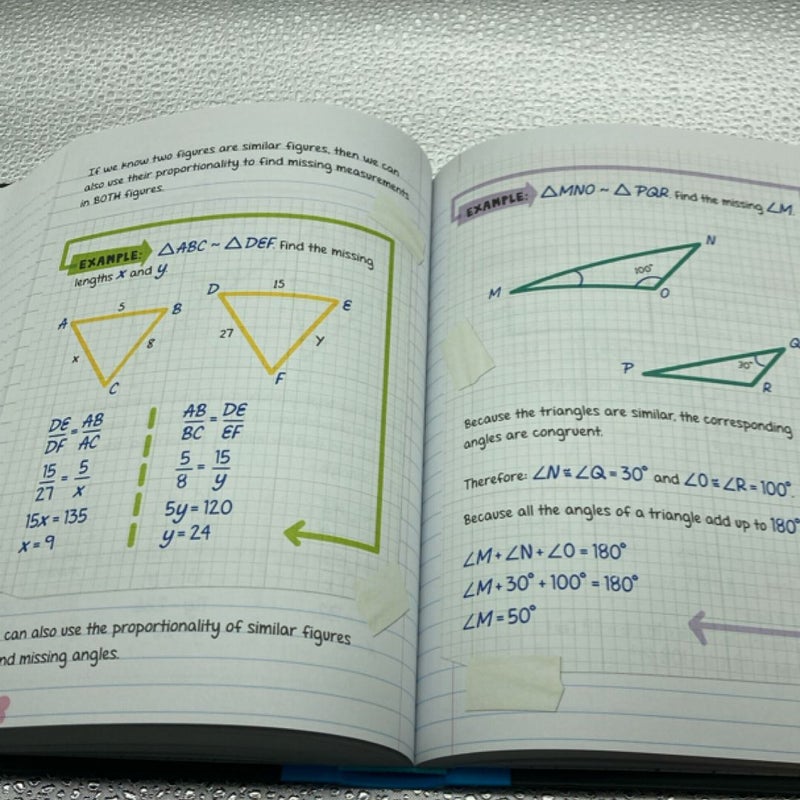 If we know two figures are similar figures, then we can
also use their proportionality to find missing measurements
in BOTH figures.
EXAMPLE: △ABC ~ △DEF. Find the missing
lengths x and y.
A 5 B
x 8
C
D 15 E
27 y
F
DE/DF = AB/AC
15/27 = 5/x
15x = 135
x = 9
AB/BC = DE/EF
5/8 = 15/y
5y = 120
y = 24
can also use the proportionality of similar figures
nd missing angles.
EXAMPLE: △MNO ~ △PQR. Find the missing ∠M.
N
100°
M O
Q
P 30°
R
Because the triangles are similar, the corresponding
angles are congruent.
Therefore: ∠N ≅ ∠Q = 30° and ∠O ≅ ∠R = 100°.
Because all the angles of a triangle add up to 180°
∠M + ∠N + ∠O = 180°
∠M + 30° + 100° = 180°
∠M = 50°